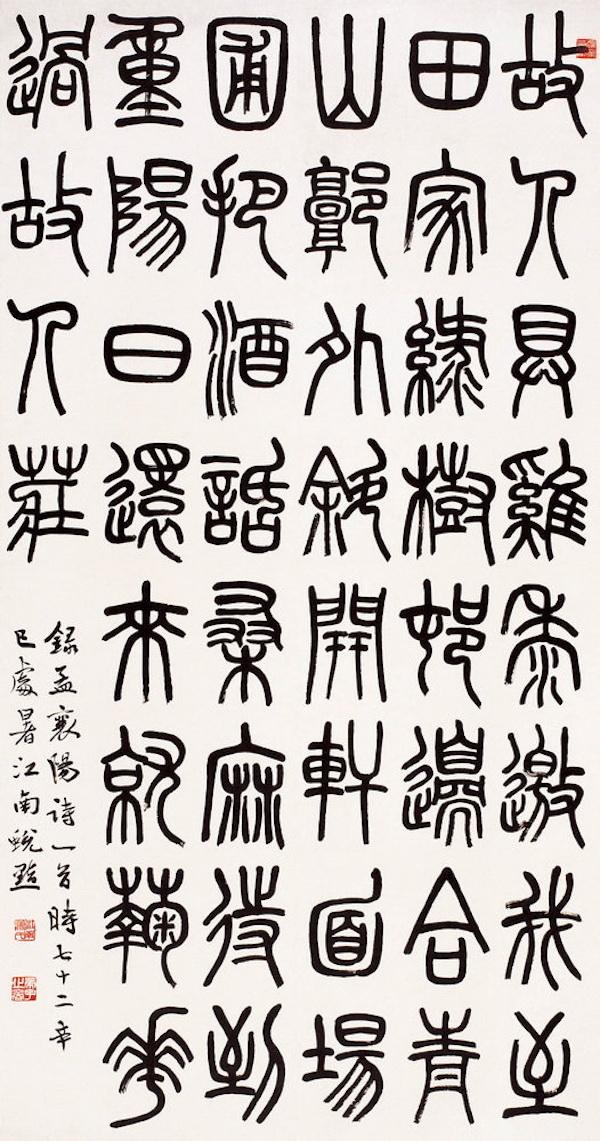 故人具雞黍邀我至
田家綠樹邨邊合青
山郭外斜開軒面場
圃把酒話桑麻待到
重陽日還來就菊花
過故人莊
録孟襄陽詩一首時七十二辛
巳處暑江南蛻